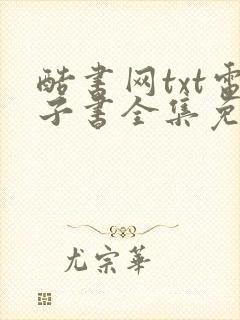 酷书网txt电
子书全集免
尤宗华